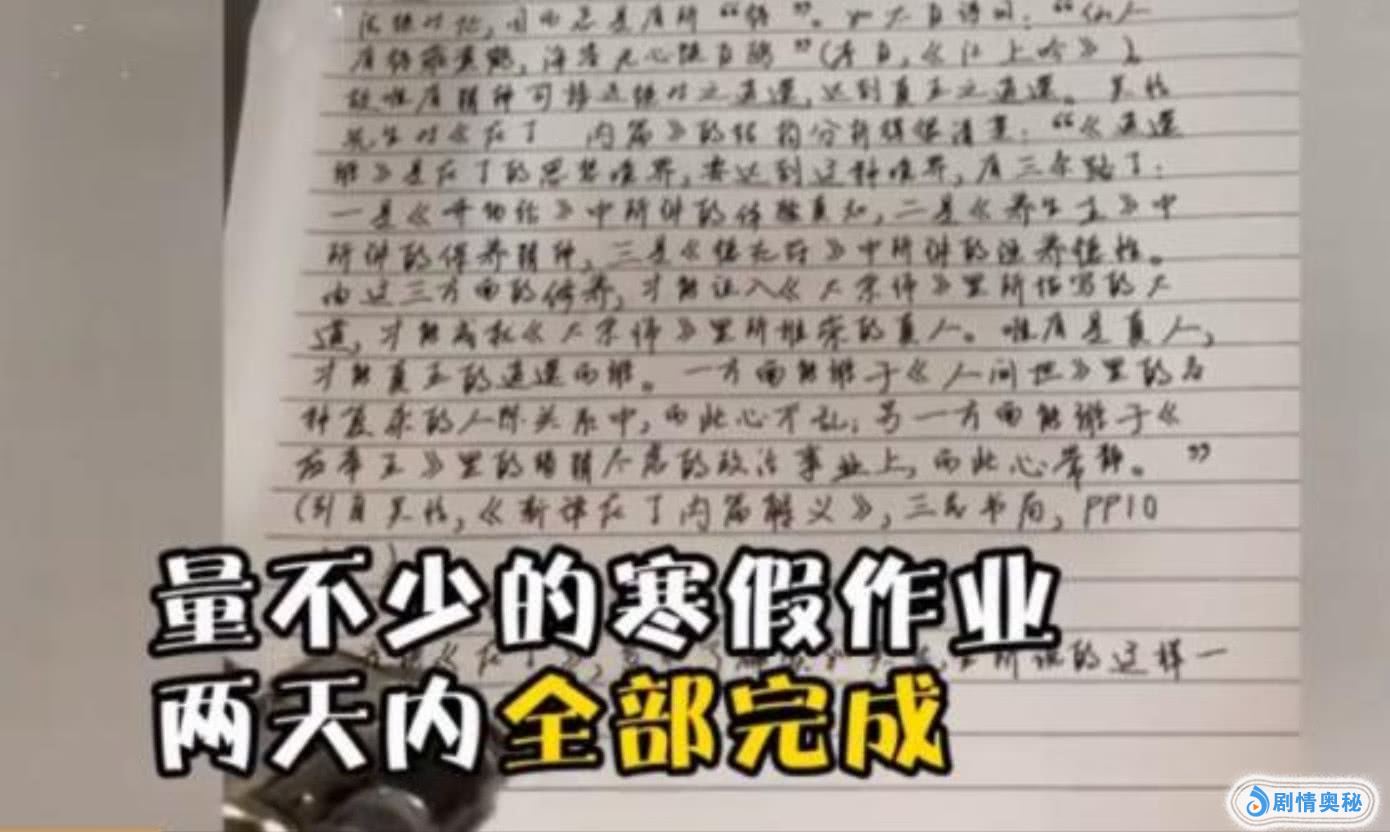 没绝对化，因而总是有所“待”。如李白诗曰：“仙人
有待乘黄鹤，海客无心随白鸥”（李白，《江上吟》）
故唯有精神可接近绝对之逍遥，达到真正之逍遥。吴怡
先生对《庄子 内篇》的结构分析得很清楚：“《逍遥
游》是庄子的思想境界，要达到这种境界，有三条路子：
一是《齐物论》中所讲的体验真知，二是《养生主》中
所讲的保养精神，三是《德充符》中所讲的涵养德性。
由这三方面的修养，才能证入《大宗师》里所描写的大
道，才能成就《大宗师》里所推崇的真人。唯有是真人，
才能真正的逍遥而游。一方面能游于《人间世》里的各
种复杂的人际关系中，而此心不乱；另一方面能游于《
应帝王》里的错综个危的政治事业上，而此心常静。”
（引自吴怡，《新译庄子内篇解义》，三民书局，PP10
量不少的寒假作业
所说的这样一
两天内全部完成
剧情奥秘